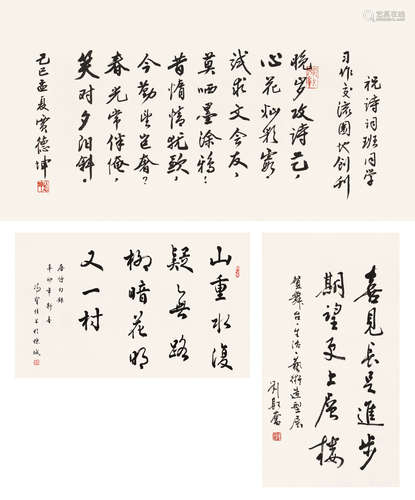 祝诗词班同学
习作交流园地创刊
晚岁攻诗艺，
心花灿彩霞，
试求文会友，
莫哂墨涂鸦：
昔惰情犹歉，
今勤
奢？
春光常伴俺，
笑对夕阳斜。
己巳孟夏
德坤
山重水復
疑無路
柳暗花明
又一村
辛卯年新春
喜見长足進步
期望更上层楼
賀舞台·生活·藝術造型展